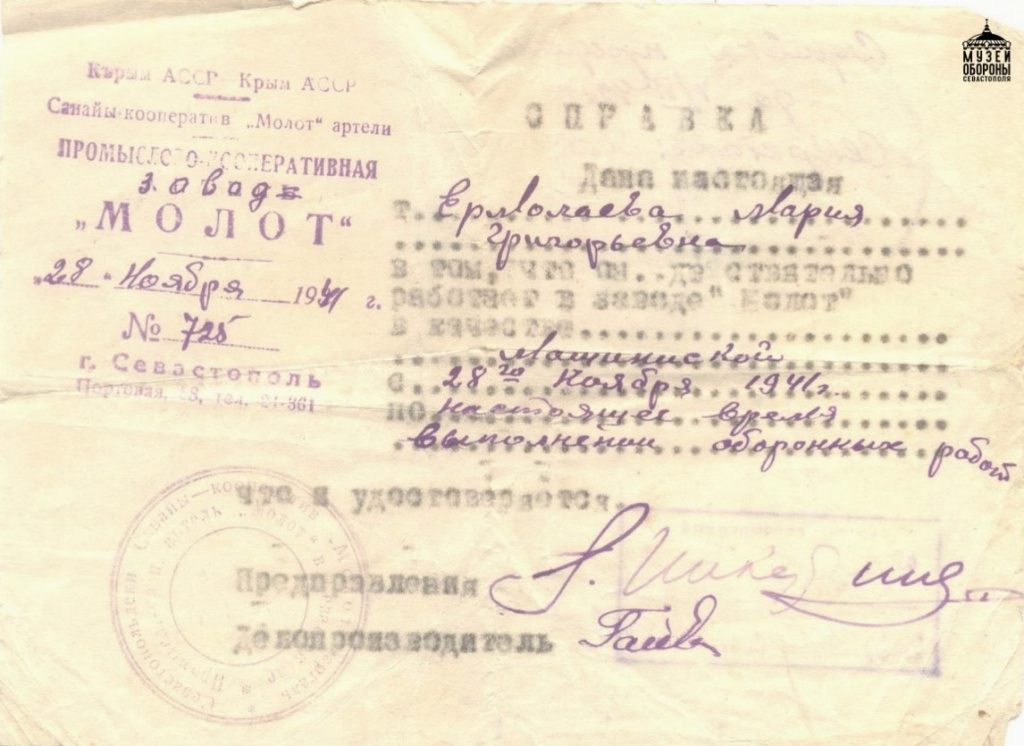 МУЗЕЙ
ОБОРОНЫ
СЕВАСТОПОЛЯ
Кърым АССР Крым АССР
Санайы-кооператив „Молот“ артели
ПРОМЫСЛОВО-КООПЕРАТИВНАЯ
завод
„МОЛОТ“
„28“ Ноября 1941 г.
№ 725
г. Севастополь
Портовая, 18, тел. 24-361
СПРАВКА
Дана настоящая
т. Ермолаева Мария
Григорьевна
в том, что он.. действительно
работает в заводе "Молот"
в качестве
Машиниской
с 28го Ноября 1941г.
по настоящее время
выполнении оборонных работ
что и удостоверяется.
Предправления
Делопроизводитель